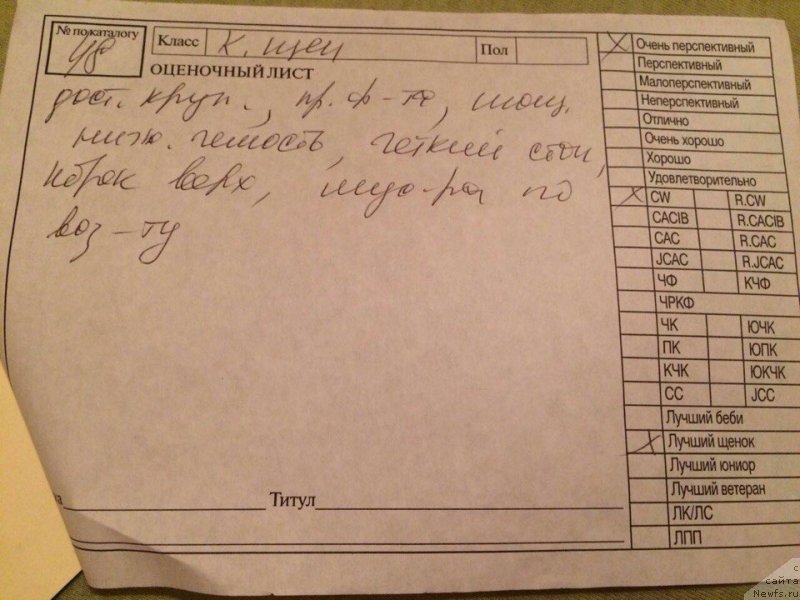 № по каталогу
48
Класс К. щен
Пол
ОЦЕНОЧНЫЙ ЛИСТ
дост. круп., пр. ф-та, мощ.
ниж. челюсть, готкий
верх, по
воз-ту
Титул
Очень перспективный
Перспективный
Малоперспективный
Неперспективный
Отлично
Очень хорошо
Хорошо
Удовлетворительно
CW R.CW
CACIB R.CACIB
CAC R.CAC
JCAC R.JCAC
ЧФ КЧФ
ЧРКФ
ЧК ЮЧК
ПК ЮПК
КЧК ЮКЧК
CC JCC
Лучший беби
Лучший щенок
Лучший юниор
Лучший ветеран
ЛК/ЛС
ЛПП
с
сайта
Newfs.ru